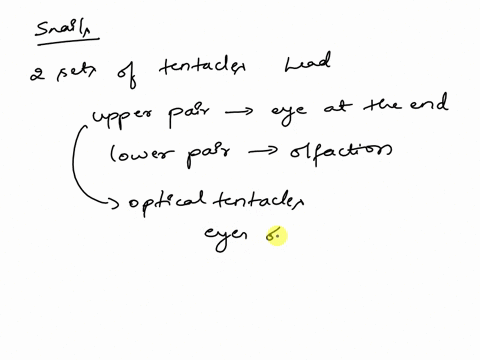 Snails
2 sets of tentacles head
upper pair → eye at the end
lower pair → olfaction
→ optical tentacles
eyes